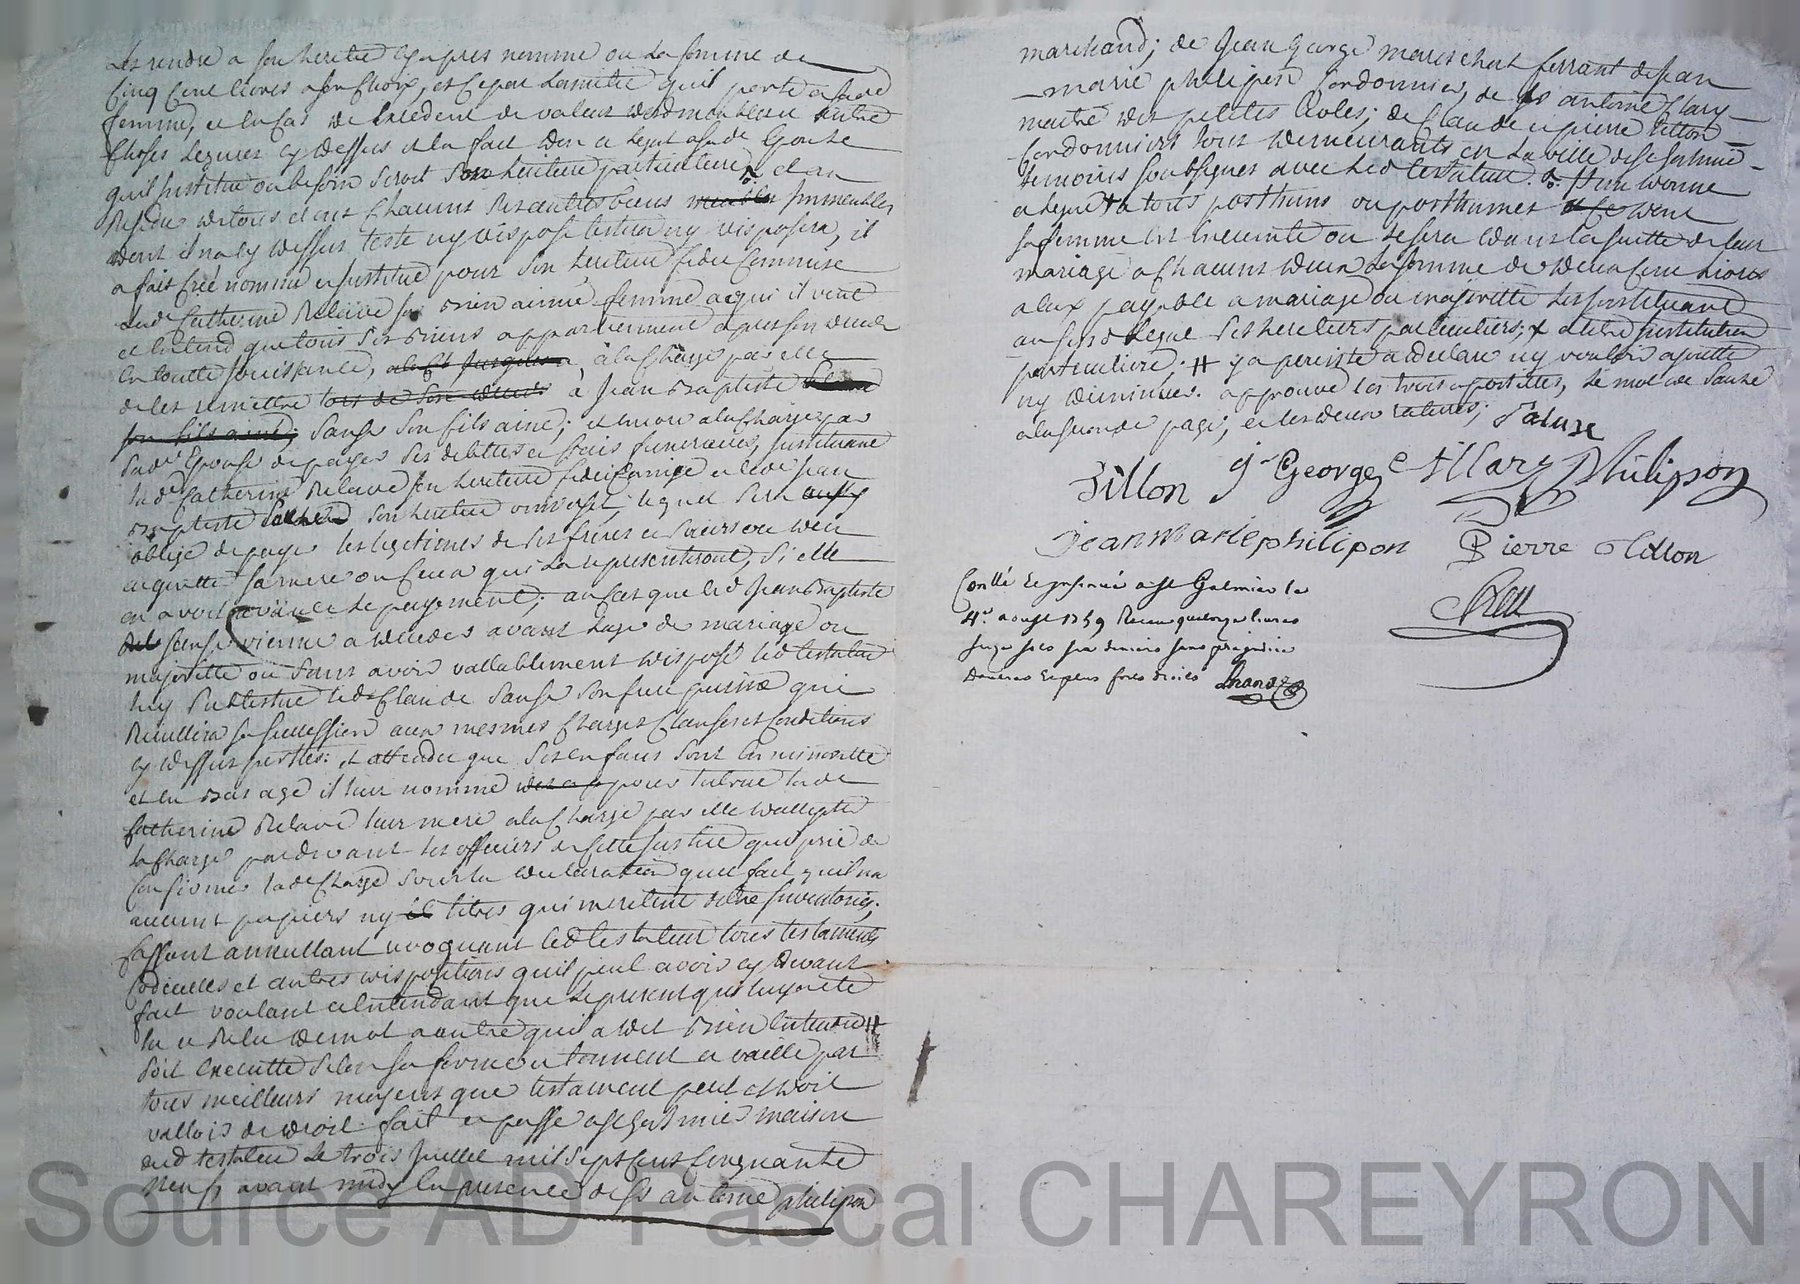 les rendre a son heritié cy apres nommé ou la somme de
Cinq Cent livres a son Choix, et Ce par la mettre quil porte a sad
femme, et en Cas de Excedent de valeur desd meubles autre
Choses leguees cy dessus il en fait don et legat a sad Epouse
quil Institue ou besoin seroit son heritiere particuliere, et au
Residu de tous et uns Chacuns ses autres biens meubles Immeubles
dont il n'a cy dessus testé ny disposé testera ny disposera, il
a fait créé nommé et Institué pour son heritiere fidei Commise
lad Catherine Relave sa bien aimée femme a qui il veut
et Entend que tous ses biens appartiennent apres son deced
en toutte jouissance, à la Charge par elle
de les remettre lors de son deceds à Jean Baptiste
son fils ainé; Sause son fils ainé; et encore a la Charge par
sad Epouse de payer ses debttes et frais funeraires, Instituant
lad Catherine Relave son heritiere fideicomise et led Jean
Baptiste son heritier universel, lequel sera
obligé de payer les legitimes de ses freres et soeurs ou d'en
acquitter sa mere ou Ceux qui la representeront, si elle
en avoit avancé le payement; au Cas que led Jean Baptiste
Sause vienne a deceder avant l'age de mariage ou
majoritté ou sans avoir vallablement disposé led testateur
luy substitue led Claude Sause son frere puisné qui
Recuillira sa succession aux mesmes Charges Clauses et Conditions
cy dessus portées: et attendu que ses enfans sont en minoritté
et en bas age il leur nomme pour tutrice lad
Catherine Relave leur mere a la Charge par elle d'accepter
la Charge pardevant les officiers de Cette Justice quil prie de
Confirmer lad Charge sous la declaration quil fait quil n'a
aucuns papiers ny titres qui meritent d'etre Inventoriés.
Cassant annullant revoquant led testateur tous testaments
Codicilles et autres dispositions quil peut avoir cy devant
fait voulant et Entendant que le present qui luy a eté
lu et Relu de mot a autre qui a dit bien Entendre #
soit executté selon sa forme et tenneur et vaille par
tous meilleurs moyens que testament peut et doit
valloir de droit. fait et passé a St Galmier maison
dud testateur le trois Juillet mil sept cent Cinquante
Neuf avant midy En presence de Sr antoine philipon
marchand; de Jean George mareschal ferrant de Jean
marie philipon Cordonnier, de Sr antoine Clary
maitre des petites Ecoles; de Claude et pierre tillon
Cordonniers tous demeurants en la ville de St Galmier
temoins soussignés avec led testateur. # Item donne
et legue a tous posthums ou posthumes dont
sa femme est enceinte ou le sera dans la suitte de leur
mariage a Chacuns d'eux la somme de deux Cent livres
a eux payable a mariage ou majoritté les Instituant
au susd legue ses heritiers particuliers; x a titre Institution
particuliere; # y a persisté a declaré ny vouloir ajoutter
ny diminuer. approuvé les trois apostilles, le mot de Sause
a la seconde page, et les deux ratures; Sause
Tillon J George Clary Philipon
Jean Marie philipon Pierre tillon
Conllé Et Insinué a St Galmier le
4e aoust 1759 Receu quatorze livres
Sans prejudice